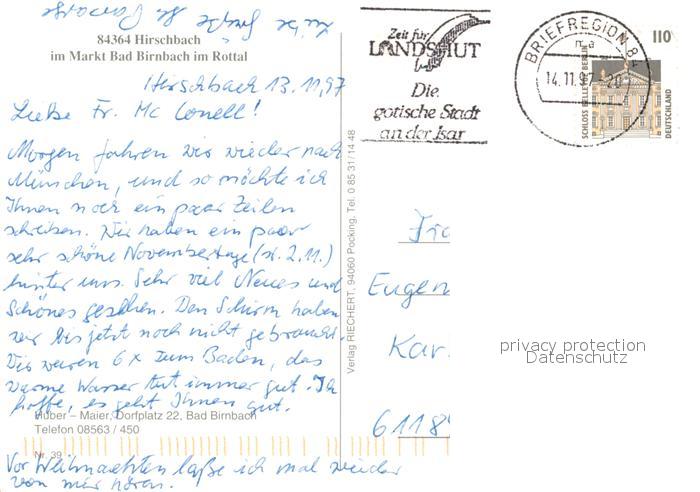 Liebe Grüße
84364 Hirschbach
im Markt Bad Birnbach im Rottal
Hirschbach 13.11.97
Liebe Fr. Mc Conell!
Morgen fahren wir wieder nach
München, und so möchte ich
Ihnen noch ein paar Zeilen
schreiben. Wir haben ein paar
sehr schöne Novembertage (st. 2.11.)
hinter uns. Sehr viel Neues und
Schönes gesehen. Den Schirm haben
wir bis jetzt noch nicht gebraucht.
Wir waren 6 x zum Baden, das
warme Wasser tut immer gut. Ich
hoffe, es geht Ihnen gut.
Huber – Maier, Dorfplatz 22, Bad Birnbach
Telefon 08563 / 450
Nr. 39
Vor Weihnachten laße ich mal wieder
von mir hören.
Verlag RIECHERT, 94060 Pocking, Tel. 0 85 31/14 48
Zeit für
LANDSHUT
Die
gotische Stadt
an der Isar
BRIEFREGION 84
ma
14.11.97-20
110
SCHLOSS BELLEVUE BERLIN
DEUTSCHLAND
Fra
Eugen
Karl
6118
privacy protection
Datenschutz